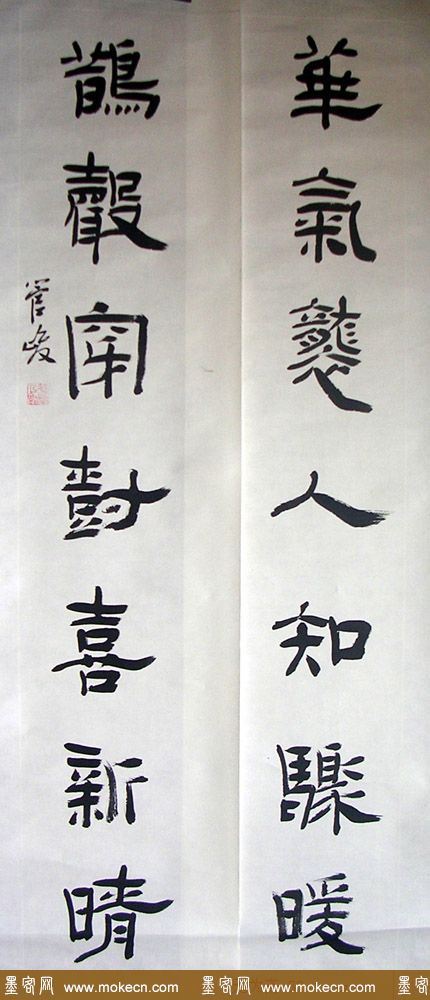 華氣襲人知驟暖
鵲聲穿樹喜新晴
管峻
墨客网 www.mokecn.com 墨客网 www.mokecn.com